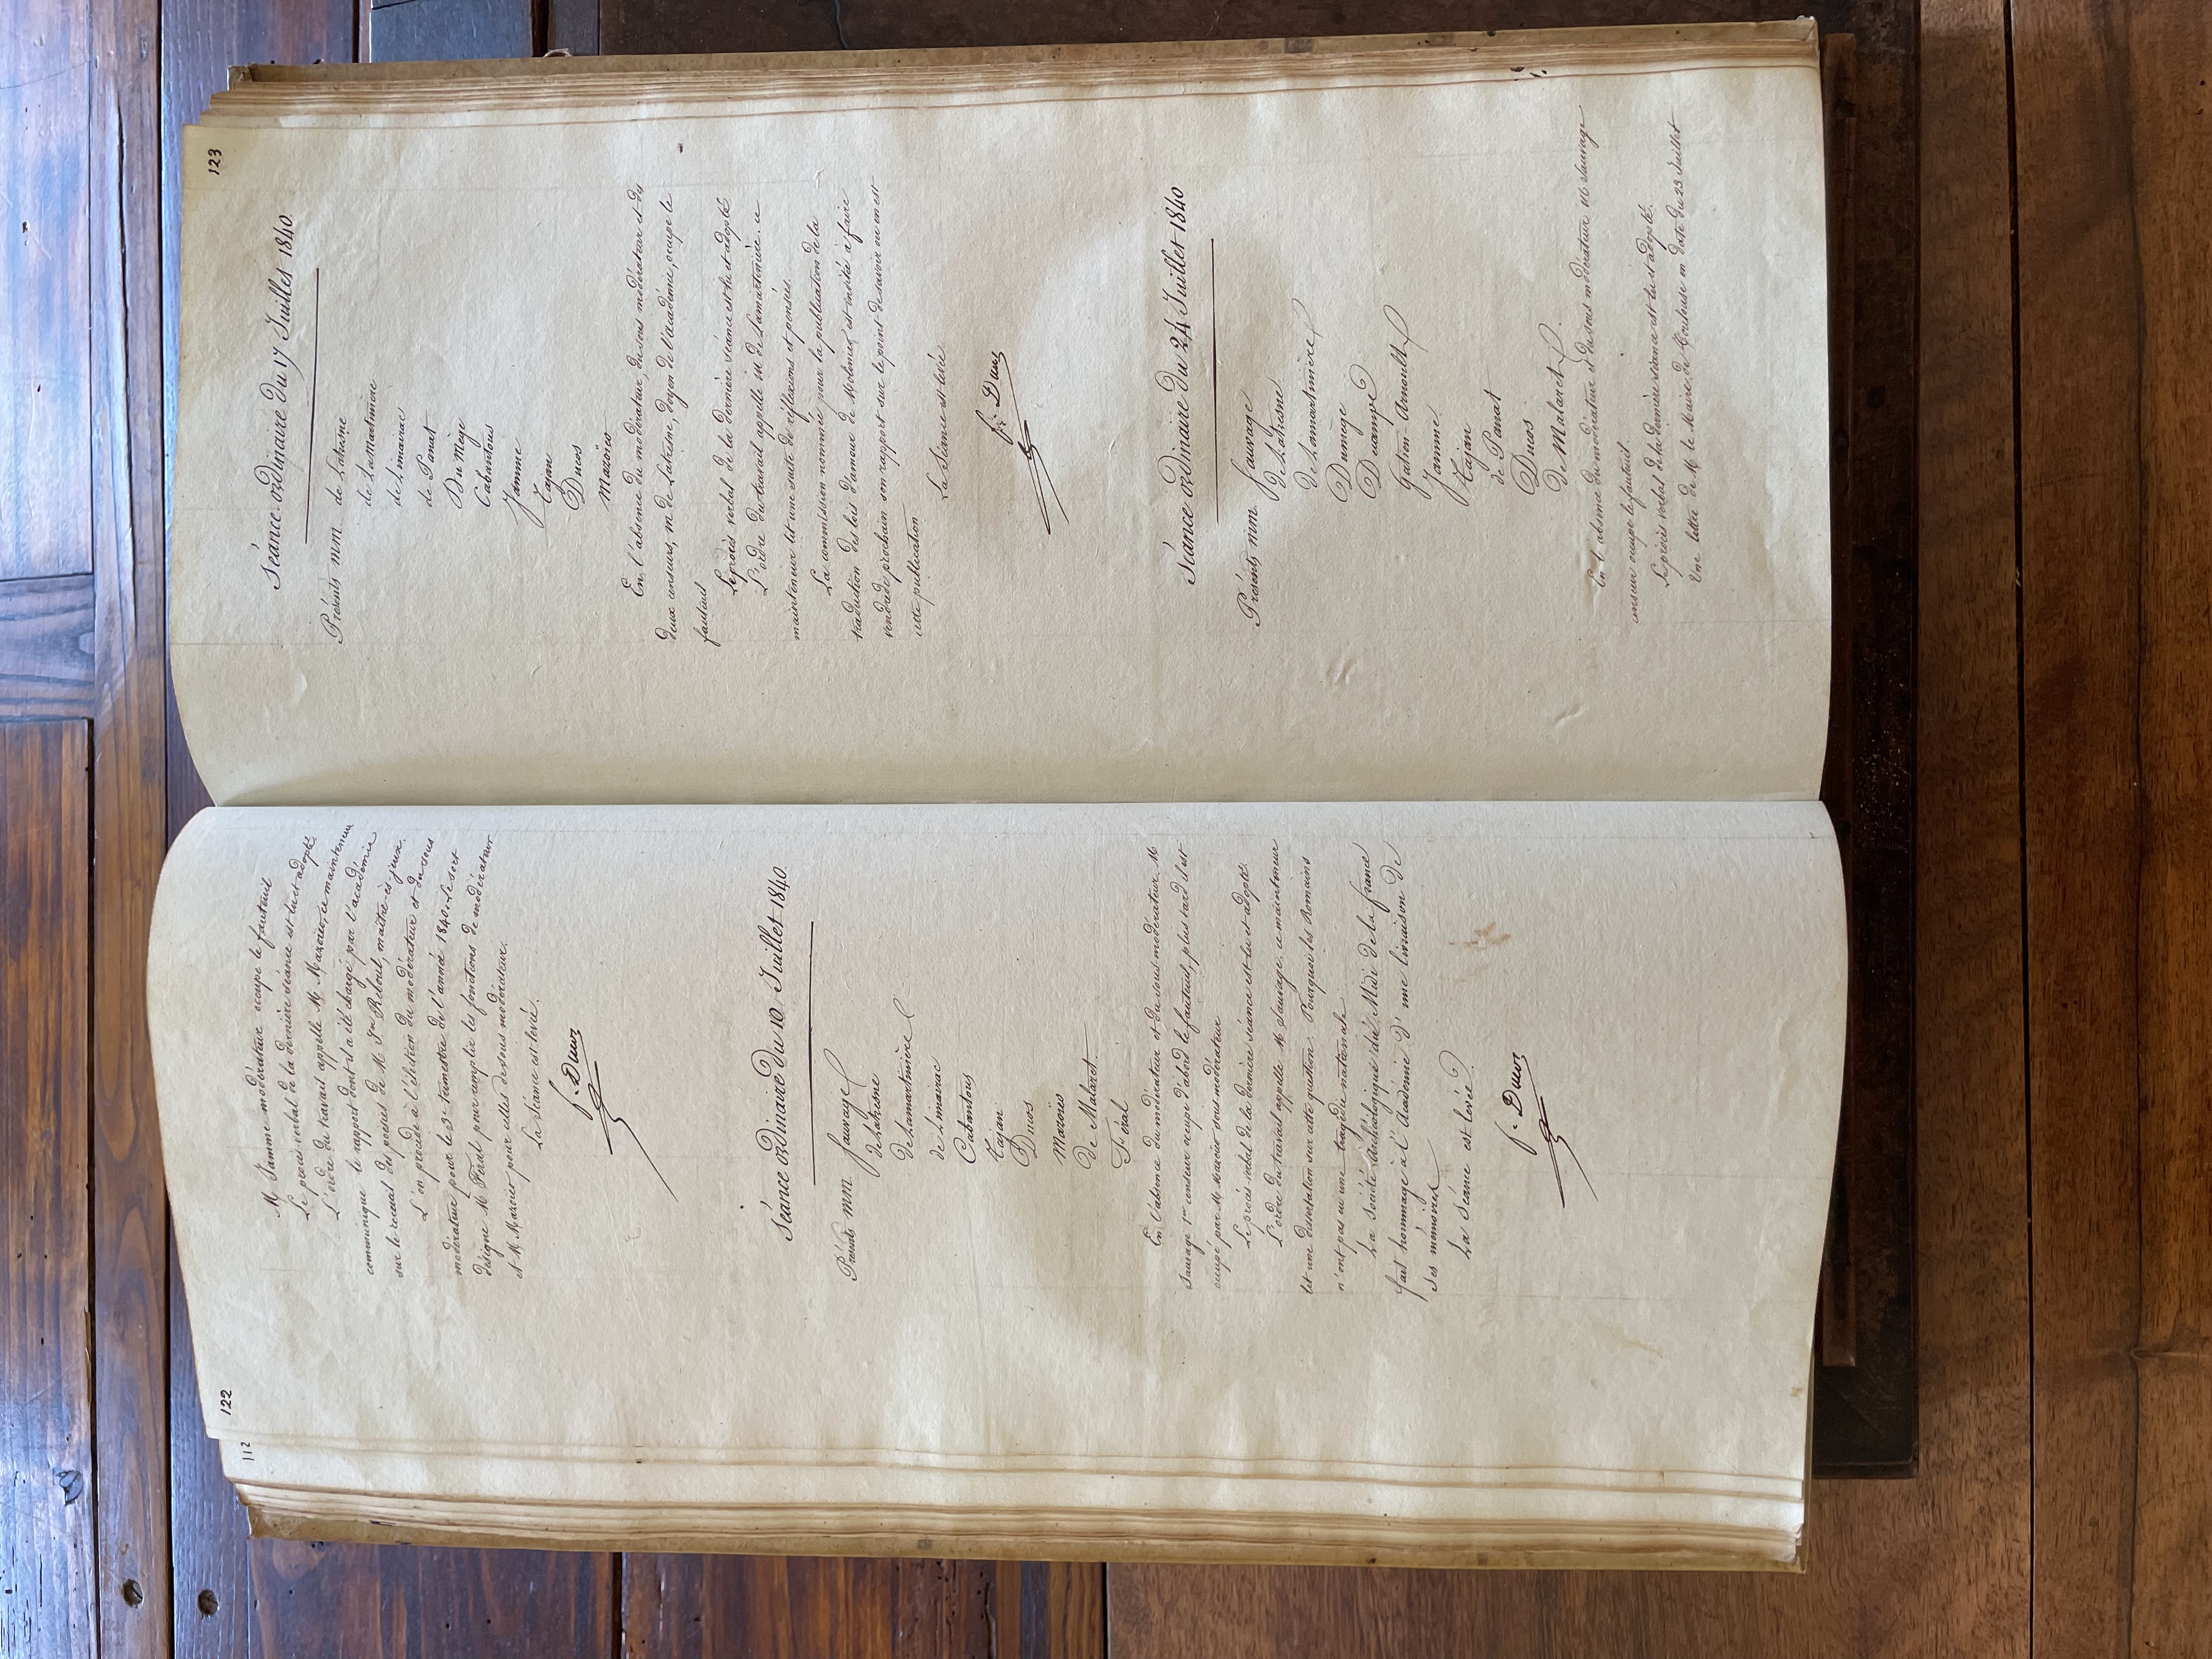 112
122
M Jamme modérateur occupe le fauteuil
Le procès verbal de la dernière séance est lu et adopté.
L'ordre du travail appelle M. Mazoier, ce mainteneur
communique le rapport dont il a été chargé par l'académie
sur le recueil des poésies de M. Jn Reboul, maître-ès-jeux.
L'on procède à l'élection du modérateur et du sous
modérateur pour le 3e trimestre de l'année 1840. Le sort
désigne M Féral pour remplir les fonctions de modérateur
et M Mazoier pour celles de sous modérateur.
La séance est levée.
f. Ducos
Séance ordinaire du 10 Juillet 1840.
Présents mm Sauvage
de Latresne
de Lamartinière
de Limairac
Cabantous
Tajan
Ducos
Mazoier
De Malaret
Féral
En l'absence du modérateur et du sous modérateur M
Sauvage 1er censeur occupe d'abord le fauteuil, plus tard il est
occupé par M Mazoier sous modérateur
Le procès verbal de la dernière séance est lu et adopté.
L'ordre du travail appelle M Sauvage. ce mainteneur
lit une dissertation sur cette question: Pourquoi les Romains
n'ont pas eu une tragédie nationale.
La société Archéologique du Midi de la france
fait hommage à l'Académie d'une livraison de
Ses mémoires
La Séance est levée
f. Ducos
123
Séance ordinaire du 17 Juillet 1840.
Présents mm de Latresne
de La Martinière
de Limairac
de Panat
Du Mège
Cabantous
Jamme
Tajan
Ducos
Mazoier
En l'absence du modérateur, du sous modérateur et des
deux censeurs, m de Latresne, doyen de l'académie, occupe le
fauteuil
Le procès verbal de la dernière séance est lu et adopté
L'ordre du travail appelle m de Lamartinière. ce
mainteneur lit une suite de réflexions et pensées.
La commission nommée pour la publication de la
traduction des lois d'amour de Molinier est invitée à faire
vendredi prochain son rapport sur le point de savoir ou en est
cette publication
La Séance est levée
f. Ducos
Séance ordinaire du 24 Juillet 1840
Présents mm. Sauvage
de Latresne
de Lamartinière
Dumège
Ducampe
Gatien-Arnoult
Jamme
Tajan
de Panat
Ducos
De Malaret
En l'absence du modérateur et du sous modérateur M Sauvage
censeur occupe le fauteuil.
Le procès verbal de la dernière séance est lu et adopté.
Une lettre de M le Maire de Toulouse en date du 23 Juillet